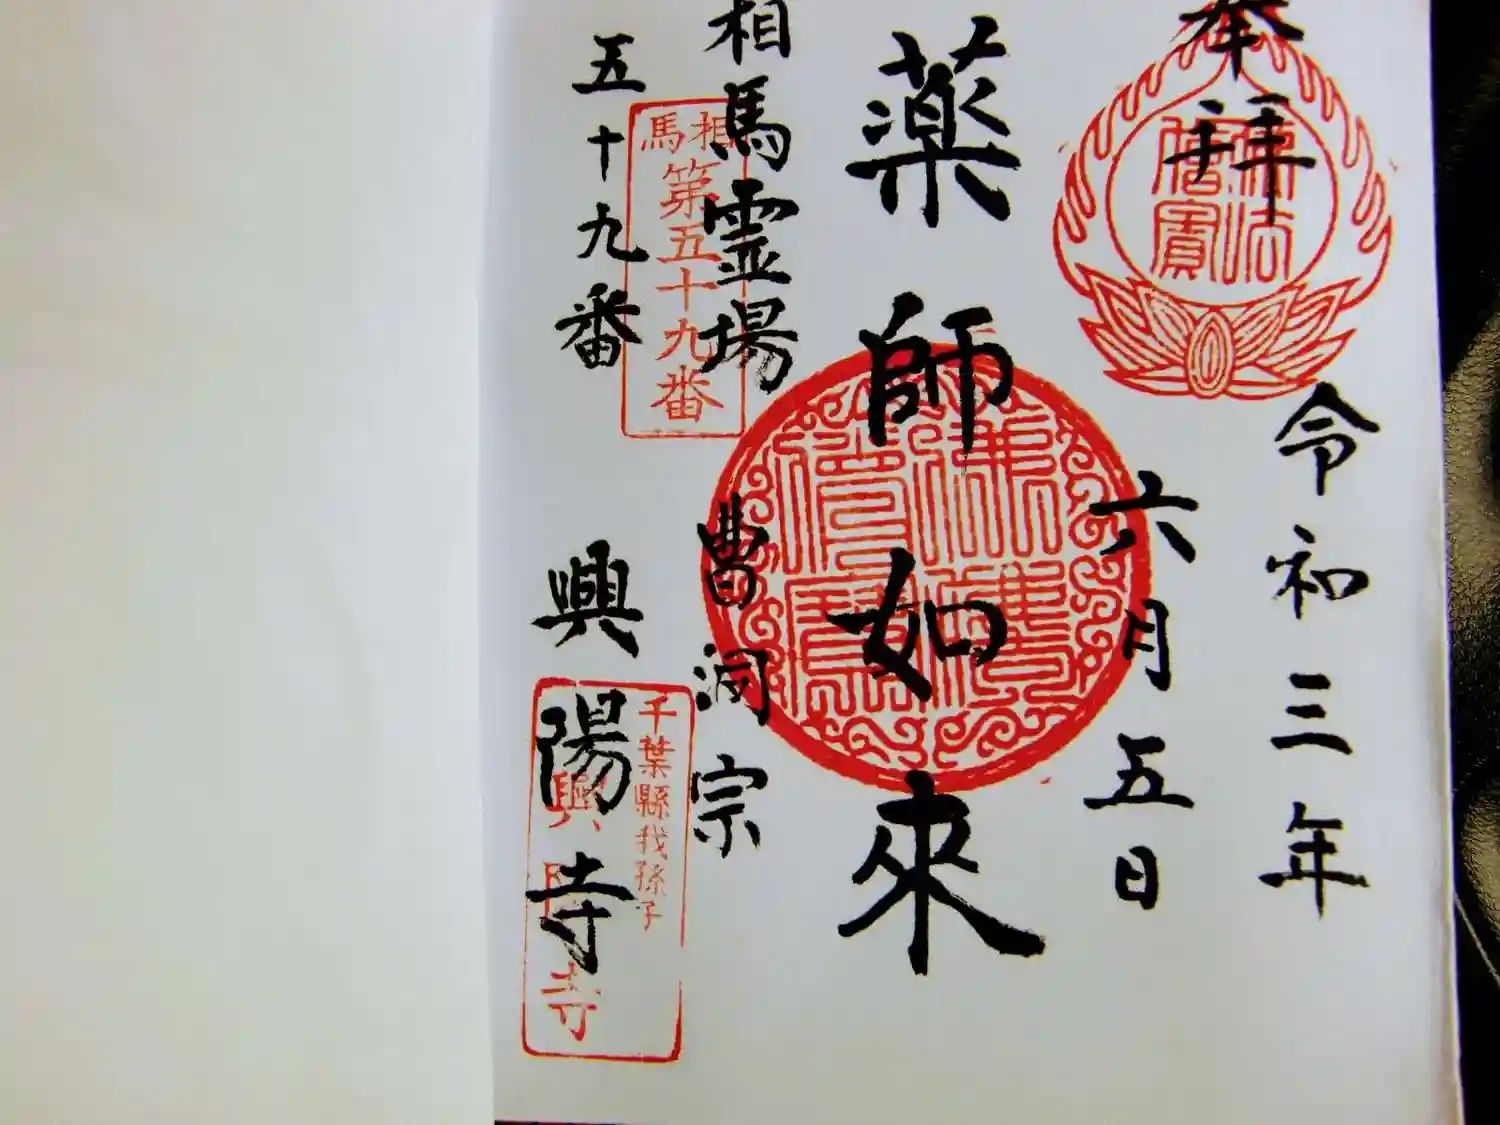 奉拝
令和三年
六月五日
佛法
僧寳
薬師如來
佛法
僧寳
相馬霊場
五十九番
相馬
第五十九番
曹洞宗
興陽寺
千葉縣我孫子
興陽寺